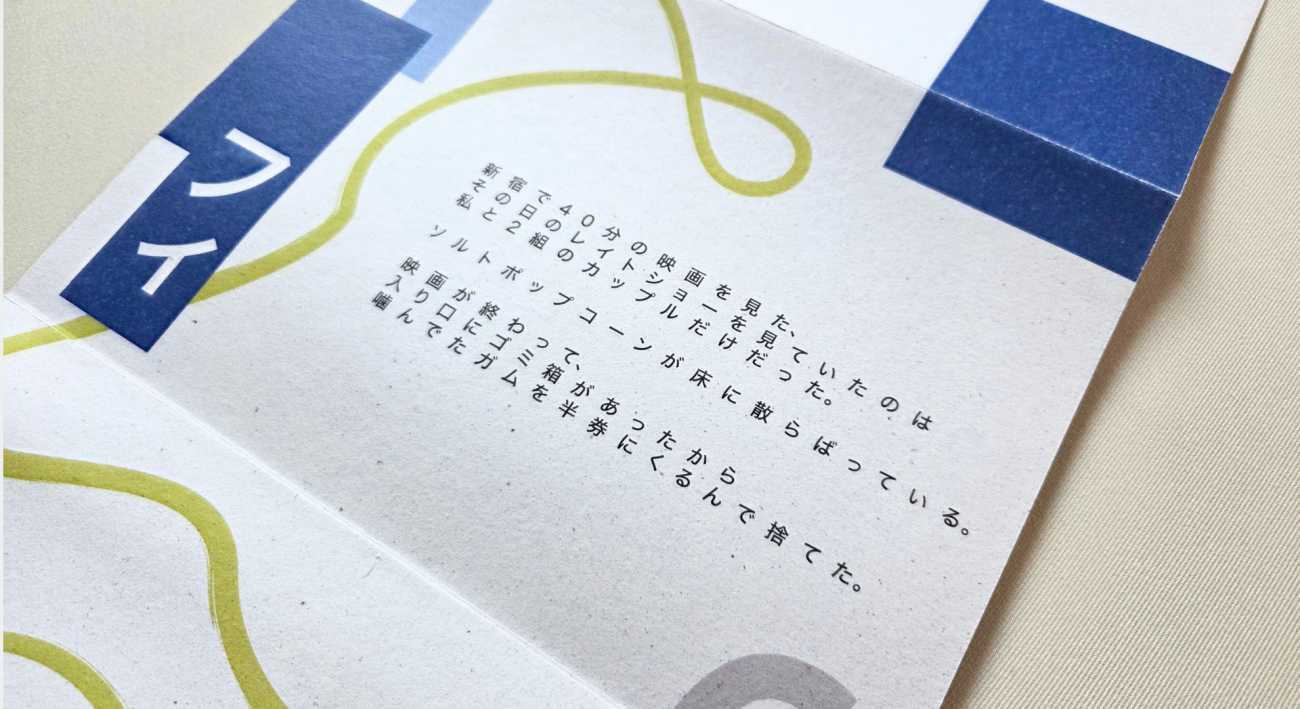 フィ
新宿で40分の映画を見た、
その日のレイトショーを見ていたのは
私と2組のカップルだけだった。
ソルトポップコーンが床に散らばっている。
映画が終わって、
入り口にゴミ箱があったから
噛んでたガムを半券にくるんで捨てた。